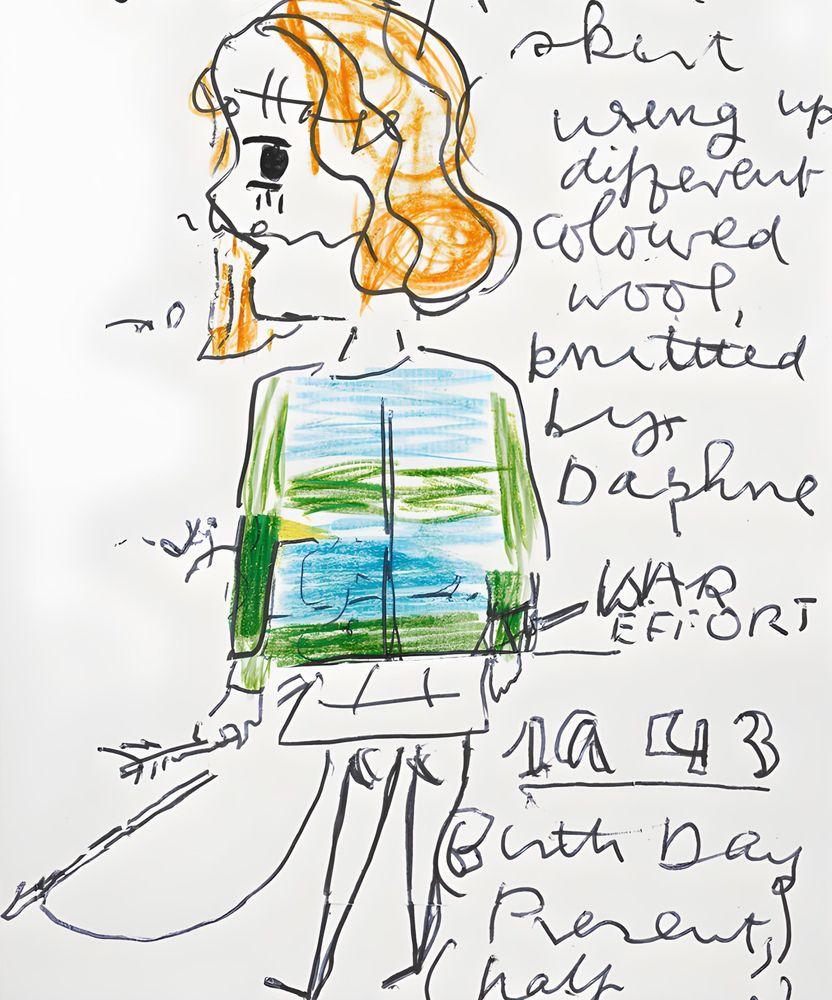 skirt
using up
different
coloured
wool,
knitted
by
Daphne
WAR
EFFORT
1943
(Birth Day
Present,)
(half